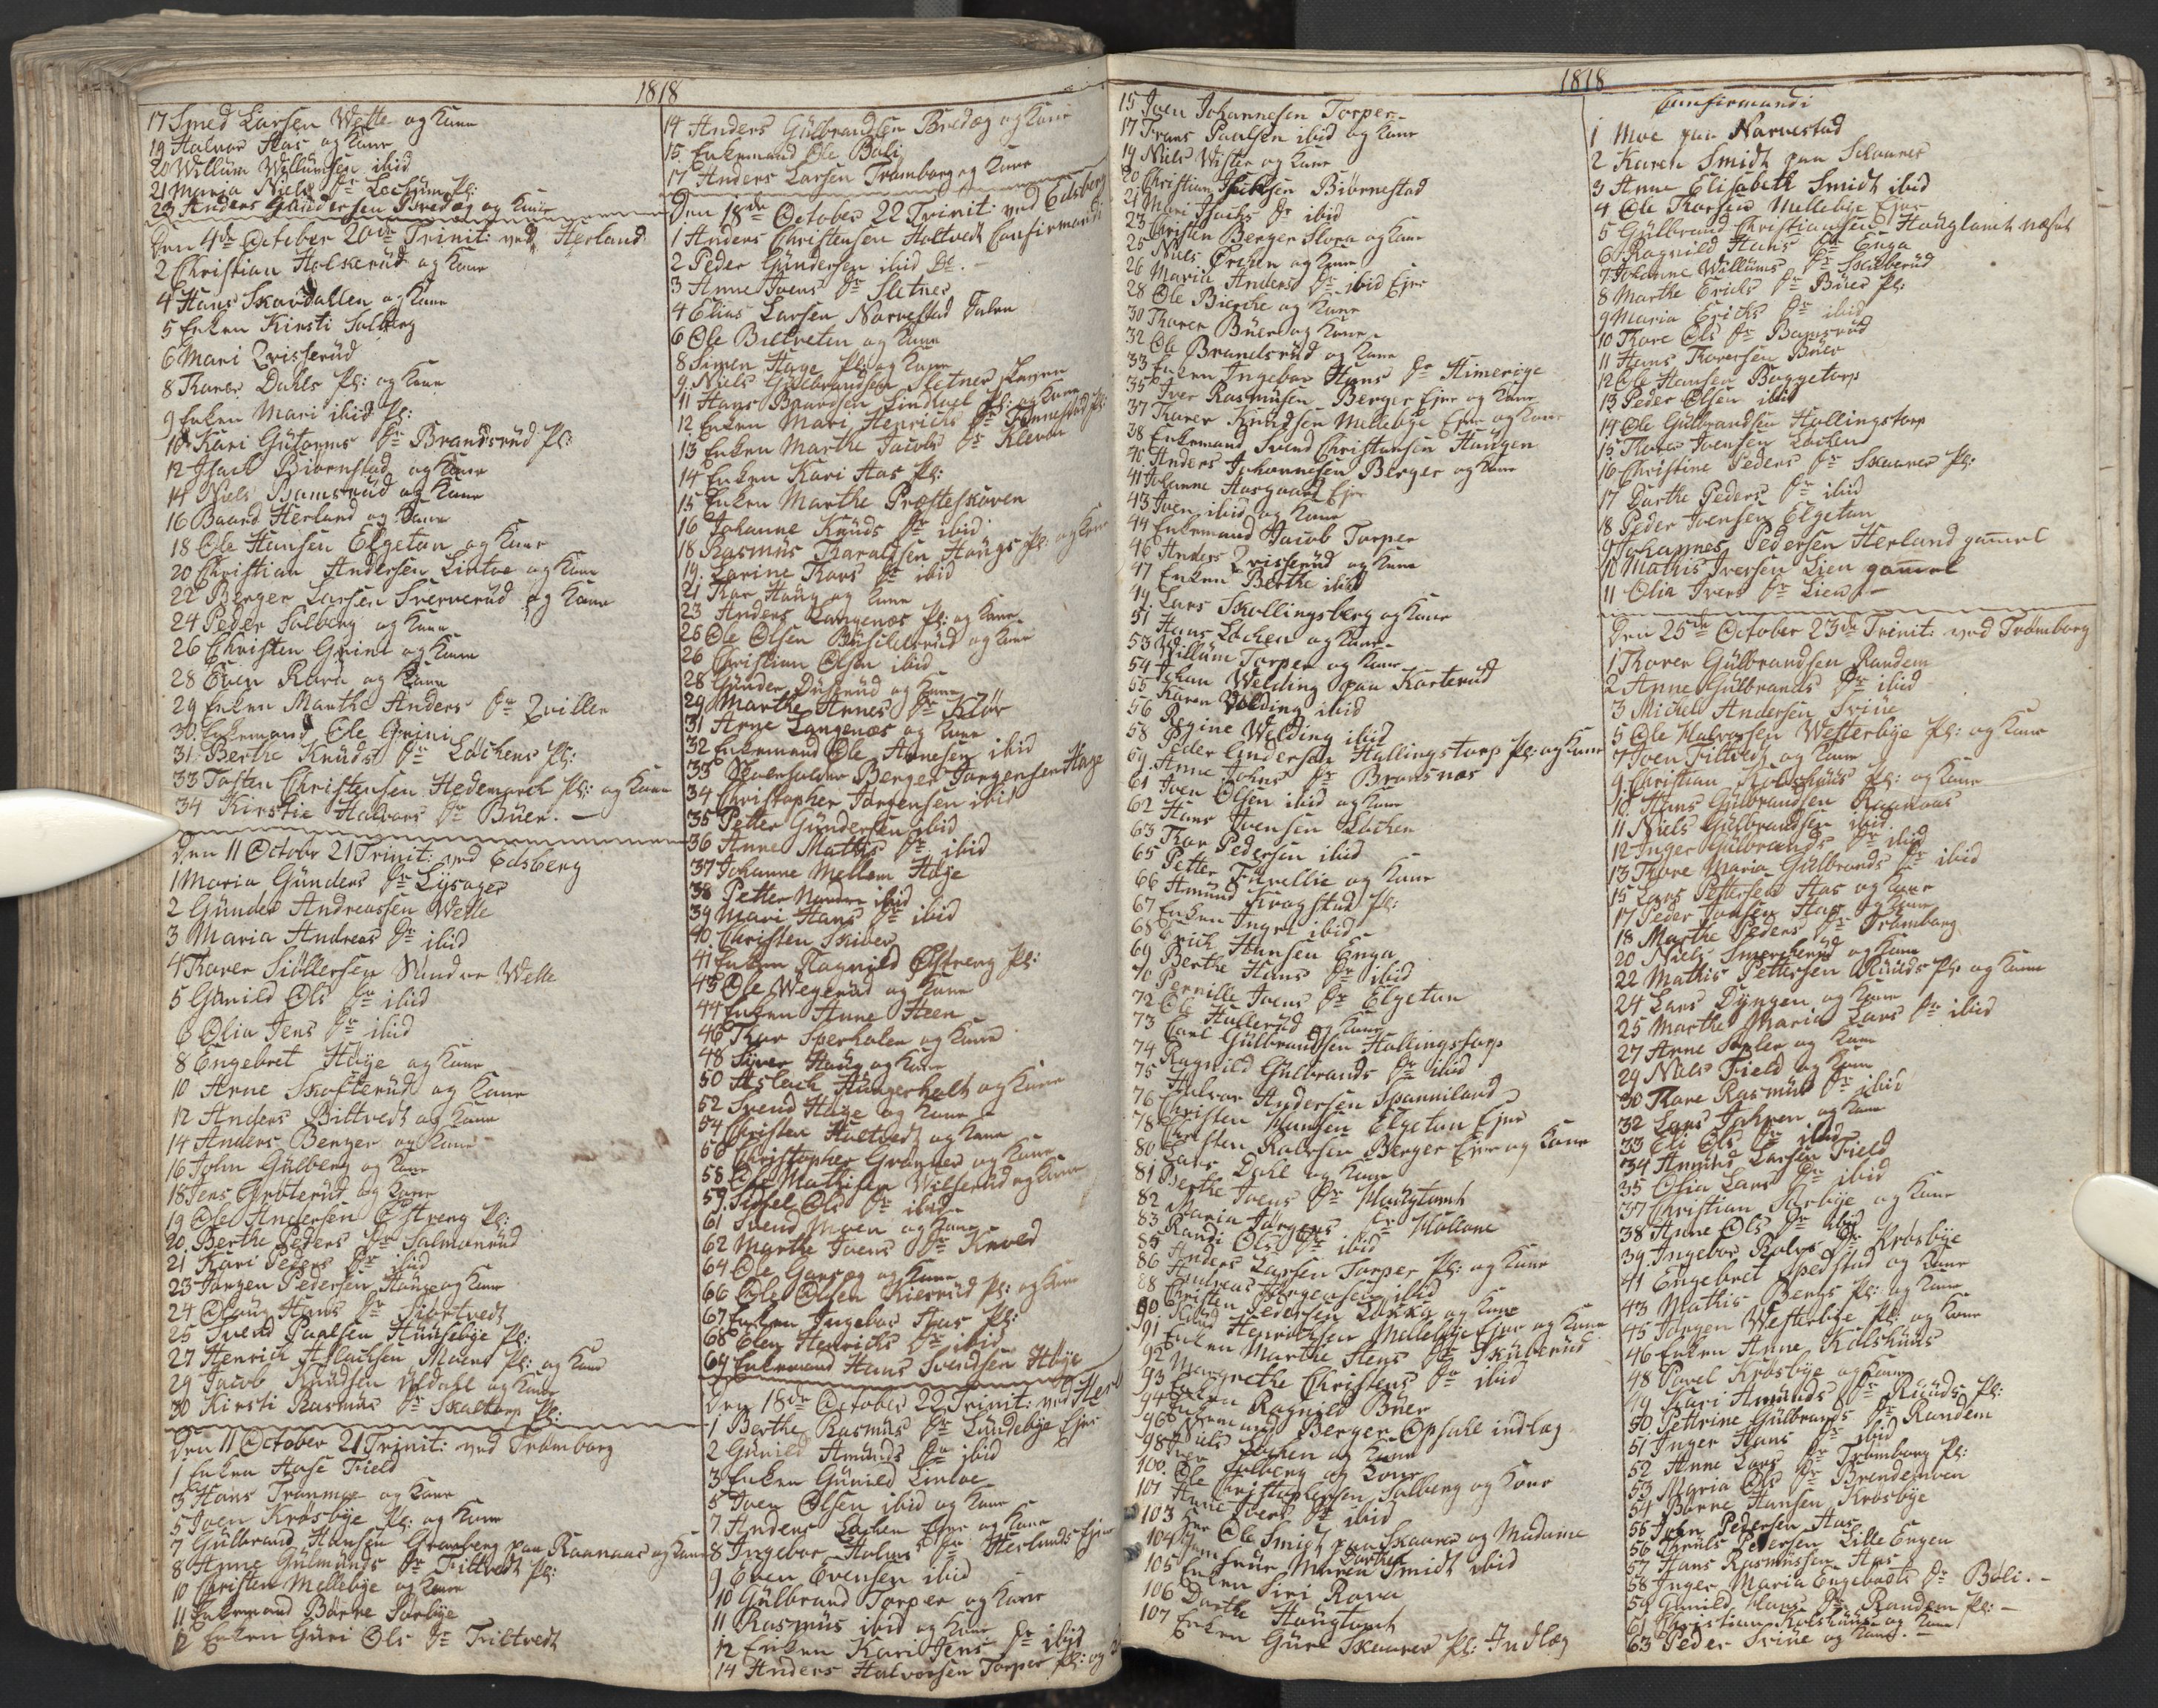 1818
17 Smed Larsen Welle og Kone
19 Halvor Aas og Kone
20 Willum Willumsen ibid
21 Maria Niels Dr Lochum Pl:
23 Anders Gundersen Bredag og Kone
Den 4de October 20de Trinit: ved Herland
2 Christian Holskerud og Kone
4 Hans Skovdallen og Kone
5 Enken Kirsti Solberg
6 Mari Qvisserud
8 Thorer Dahls Pl: og Kone
9 Enken Mari ibid Pl:
10 Kari Gutorms Dr Brandsrud Pl:
12 Isach Biørnstad og Kone
14 Niels Bamsrud og Kone
16 Baard Herland og Kone
18 Ole Hansen Elgetun og Kone
20 Christian Andersen Lintoe og Kone
22 Berger Larsen Sververud og Kone
24 Peder Solberg og Kone
26 Christen Grini og Kone
28 Even Rava og Kone
29 Enken Marthe Anders Dr Qviller
30 Enkemand Ole Grini
31 Berthe Knuds Dr Løchens Pl:
33 Tosten Christensen Hedemarch Pl: og Kone
34 Kirstie Halvors Dr Buer. -
Den 11 Octobr 21 Trinit: ved Edsberg
1 Maria Gunders Dr Lysager
2 Gunder Andreassen Welle
3 Maria Andreas Dr ibid
4 Thorer Siøllersen Nundre Welle
5 Gunild Ols Dr ibid
6 Olia Jens Dr ibid
8 Engebret Høye og Kone
10 Arne Skofterud og Kone
12 Anders Biltvedt og Kone
14 Anders Berger og Kone
16 John Gulberg og Kone
18 Jens Grøterud og Kone
19 Ole Andersen Østreng Pl:
20 Berthe Peders Dr Salmonrud
21 Kari Peders Dr ibid
23 Jørgen Pedersen Haug og Kone
24 Olaug Hans Dr Siortvedt
25 Svend Paulsen Huusebye Pl:
27 Henrich Aslachsen Moens Pl: og Kone
29 Jacob Knudsen Ildahl og Kone
30 Kirsti Rasmus Dr Skaltorp Pl:
Den 11 October 21 Trinit: ved Trømborg
1 Enken Aase Field
3 Hans Tronmoe og Kone
5 Iver Krosbye Pl: og Kone
7 Gulbrand Hansen Granberg paa Raanaas og Kone
8 Anne Gulmunds Dr Tiltvedt Pl:
10 Christen Mellebye og Kone
11 Enkemand Børre Sørbye
12 Enken Guri Ols Dr Tiltvedt
14 Anders Gulbrandsen Bredag og Kone
15 Enkemand Ole Bøli
17 Anders Larsen Trømborg og Kone
Den 18de October 22 Trinit: ved Edsberg
1 Anders Christensen Holtvedt Confirmandi
2 Peder Gundersen ibid Do. -
3 Anne Ivers Dr Sletner
4 Elias Larsen Narvestad Indre
6 Ole Biltveten og Kone
8 Simen Hage Pl: og Kone
9 Niels Gulbrandsen Sletner Skoven
11 Hans Baardsen Lindhoel Pl: og Kone
12 Enken Mari Henrichs Dr Tønnestad Pl:
13 Enken Marthe Jacobs Dr Kleven
14 Enken Kari Aas Pl:
15 Enken Marthe Præsteskoven
16 Johanne Knuds Dr ibid
18 Rasmus Haraldsen Haugs Pl: og Kone
19 Karine Thors Dr ibid
21 Thor Haug og Kone
23 Anders Langenæs Pl: og Kone
25 Ole Olsen Busildsrud og Kone
26 Christian Olsen ibid
28 Gunder Duserud og Kone
29 Marthe Arnes Dr Kløv
31 Arne Langenæs og Kone
32 Enkemand Ole Arnesen ibid
33 Oversoldat Berger Jørgensen Hage
34 Christopher Jørgensen ibid
35 Petter Gundersen ibid
36 Anne Mathis Dr ibid
37 Johanne Mellem Høje
38 Petter Nordre ibid
39 Mari Hans Dr ibid
40 Christen Skiver
41 Enken Ragnild Østreng Pl:
43 Ole Wegerud og Kone
44 Enken Anne Steen
46 Thor Sperholen og Kone
48 Siver Haug og Kone
50 Aslach Hungerholt og Kone
52 Svend Hage og Kone
54 Christen Holtvedt og Kone
56 Christopher Grønner og Kone
58 Ole Mathisen Wilserud og Kone
59 Sissel Ols Dr ibid
61 Svend Moen og Kone
62 Marthe Ivers Dr Knold
64 Ole Garseg og Kone
66 Ole Olsen Kierrud Pl: og Kone
67 Enken Ingebor Aas Pl:
68 Elen Henrichs Dr ibid
69 Enkemand Hans Svendsen Høye
Den 18de October 22 Trinit: ved Her
1 Berthe Rasmus Dr Lundebye Ejer
2 Gunild Amunds Dr ibid
3 Enken Gunild Lintoe
5 Iver Olsen ibid og Kone
7 Anders Løchen Ejer og Kone
8 Ingebor Holms Dr Herlands Ejer
9 Even Evensen ibid
10 Gulbrand Torper og Kone
11 Rasmus ibid og Kone
12 Enken Kari Jens Dr ibid
14 Anders Halvorsen Torper Pl: og
1818
15 Iver Johannesen Torper -
17 Frans Paulsen ibid og Kone
19 Niels Wister og Kone
20 Christian Isachsen Biørnestad
21 Mari Isachs Dr ibid
23 Christen Berger Slora og Kone
25 Niels Ørchen og Kone
26 Maria Anders Dr ibid Ejer
28 Ole Bierche og Kone
30 Thorer Buer og Kone
32 Ole Brandsrud og Kone
33 Enken Ingebor Hans Dr Himerige
35 Iver Rasmusen Berger Ejer og Kone
37 Thorer Knudsen Mellebye Ejer og Kone
38 Enkemand Svend Christensen Haugen
40 Anders Johannesen Berger og Kone
41 Johanne Aasgaard Ejer
43 Iver ibid og Kone
44 Enkemand Jacob Torper
46 Anders Qvisserud og Kone
47 Enken Berthe ibid
49 Lars Skollingsberg og Kone
51 Hans Løchen og Kone
53 Willum Torper og Kone
54 Johan Welding paa Korterud
55 Karen Welding ibid
56 Regine Welding ibid
58 Peder Andersen Hallingstorp Pl: og Kone
59 Anne Johns Dr Brødsnæs
61 Iver Olsen ibid og Kone
62 Hans Iversen Løchen
63 Thor Pedersen ibid
65 Petter Furellie og Kone
66 Amund Krogstad Pl:
67 Enken Inger ibid
68 Erich Hansen Enga
69 Berthe Hans Dr ibid
70 Pernille Ivers Dr Elgetun
72 Ole Hullerud og Kone
73 Carl Gulbrandsen Hallingstorp
74 Ragnild Gulbrands Dr ibid
75 Halvor Andersen Spanniland
76 Christen Hansen Elgetun Ejer
78 Christen Ralvsen Berger Ejer og Kone
80 Lars Dahl og Kone
81 Berthe Ivers Dr Haugtomt
82 Maria Jørgens Dr Hollone
83 Randi Ols Dr ibid
85 Anders Larsen Torper Pl: og Kone
86 Andreas Jørgensen ibid
88 Christen Pedersen Løkka og Kone
90 Knud Henrichsen Mellebye Ejer og Kone
91 Enken Marthe Stens Dr Skuberud
92 Margrethe Christens Dr ibid
93 Enken Ragnild Buer
94 Enkemand Berger Opsahl indlæg
96 Niels Løchen og Kone
98 Iver Solberg og Kone
100 Ole Christophersen Solberg og Kone
101 Anne Ivers Dr ibid
103 Hr Ole Smidt paa Skaarer og Madame
104 Jomfrue Maren Dorthea Smidt ibid
105 Enken Siri Rova
106 Dorthe Haugtomt
107 Enken Guri Skaarer Pl: Indlæg
Confirmandi
1 Moe paa Narvestad
2 Karen Smidt paa Schaarer
3 Anne Elisabeth Smidt ibid
4 Ole Thorsen Mellebye Ejer
5 Gulbrand Christiansen Haugtomt næst
6 Ragnild Hans Dr Enga
7 Johanne Willums Dr Skuberud
8 Marthe Erichs Dr Buer Pl:
9 Maria Erichs Dr ibid
10 Thore Ols Dr Bamsrud
11 Hans Thorersen Buer
12 Ole Hansen Buggetorp
13 Peder Olsen ibid
14 Ole Gulbrandsen Hallingstorp
15 Thorer Iversen Løchen
16 Christine Peders Dr Skaarer Pl:
17 Dorthe Peders Dr ibid
18 Peder Iversen Elgetun
9 Johannes Pedersen Herland gammel
10 Mathis Iversen Lien gammel
11 Olia Ivers Dr Lien -
Den 25de October 23de Trinit: ved Trømborg
1 Thorer Gulbrandsen Randem
2 Anne Gulbrands Dr ibid
3 Michel Andersen Triue
5 Ole Halvorsen Westerbye Pl: og Kone
7 Iver Tiltvedt og Kone
9 Christian Kolshuus Pl: og Kone
10 Hans Gulbrandsen Raanaas
11 Niels Gulbrandsen ibid
12 Inger Gulbrands Dr ibid
13 Thore Maria Gulbrands Dr ibid
15 Lars Pettersen Aas og Kone
17 Peder Joensen Aas og Kone
18 Marthe Peders Dr Trømborg
20 Niels Smertherud og Kone
22 Mathis Pettersen Ruuds Pl: og Kone
24 Lars Dyngen og Kone
25 Marthe Maria Lars Dr ibid
27 Arne Stuler og Kone
29 Niels Field og Kone
30 Thore Rasmus Dr ibid
32 Lars Jahren og Kone
33 Eli Ols Dr ibid
34 Amund Larsen Field
35 Olia Lars Dr ibid
37 Christian Sørbye og Kone
38 Anne Ols Dr ibid
39 Ingebor Rolvs Dr Krosbye
41 Engebret Spedstad og Kone
43 Mathis Bergs Pl: og Kone
45 Jørgen Westerbye Pl: og Kone
46 Enken Anne Kolshuus
48 Povel Krosbye og Kone
49 Kari Amunds Dr Ruuds Pl:
50 Pettrine Gulbrands Dr Randem
51 Inger Hans Dr ibid
52 Anne Lars Dr Trømborg Pl:
53 Maria Ols Dr Brendemoen
54 Børre Hansen Krosbye
55 John Pedersen Aas
56 Throls Pedersen Lille Engen
57 Hans Rasmussen Aas
58 Inger Maria Engebrets Dr Bøli. -
59 Gunild Hans Dr Randem Pl: -
61 Christian Kolshuus og Kone
63 Peder Triue og Kone